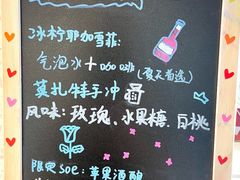 冰柠耶加雪菲:
气泡水+
(夏天首选)
莫扎特手冲
风味:玫瑰、水果糖、白桃
限定SOE:苹果酒酿